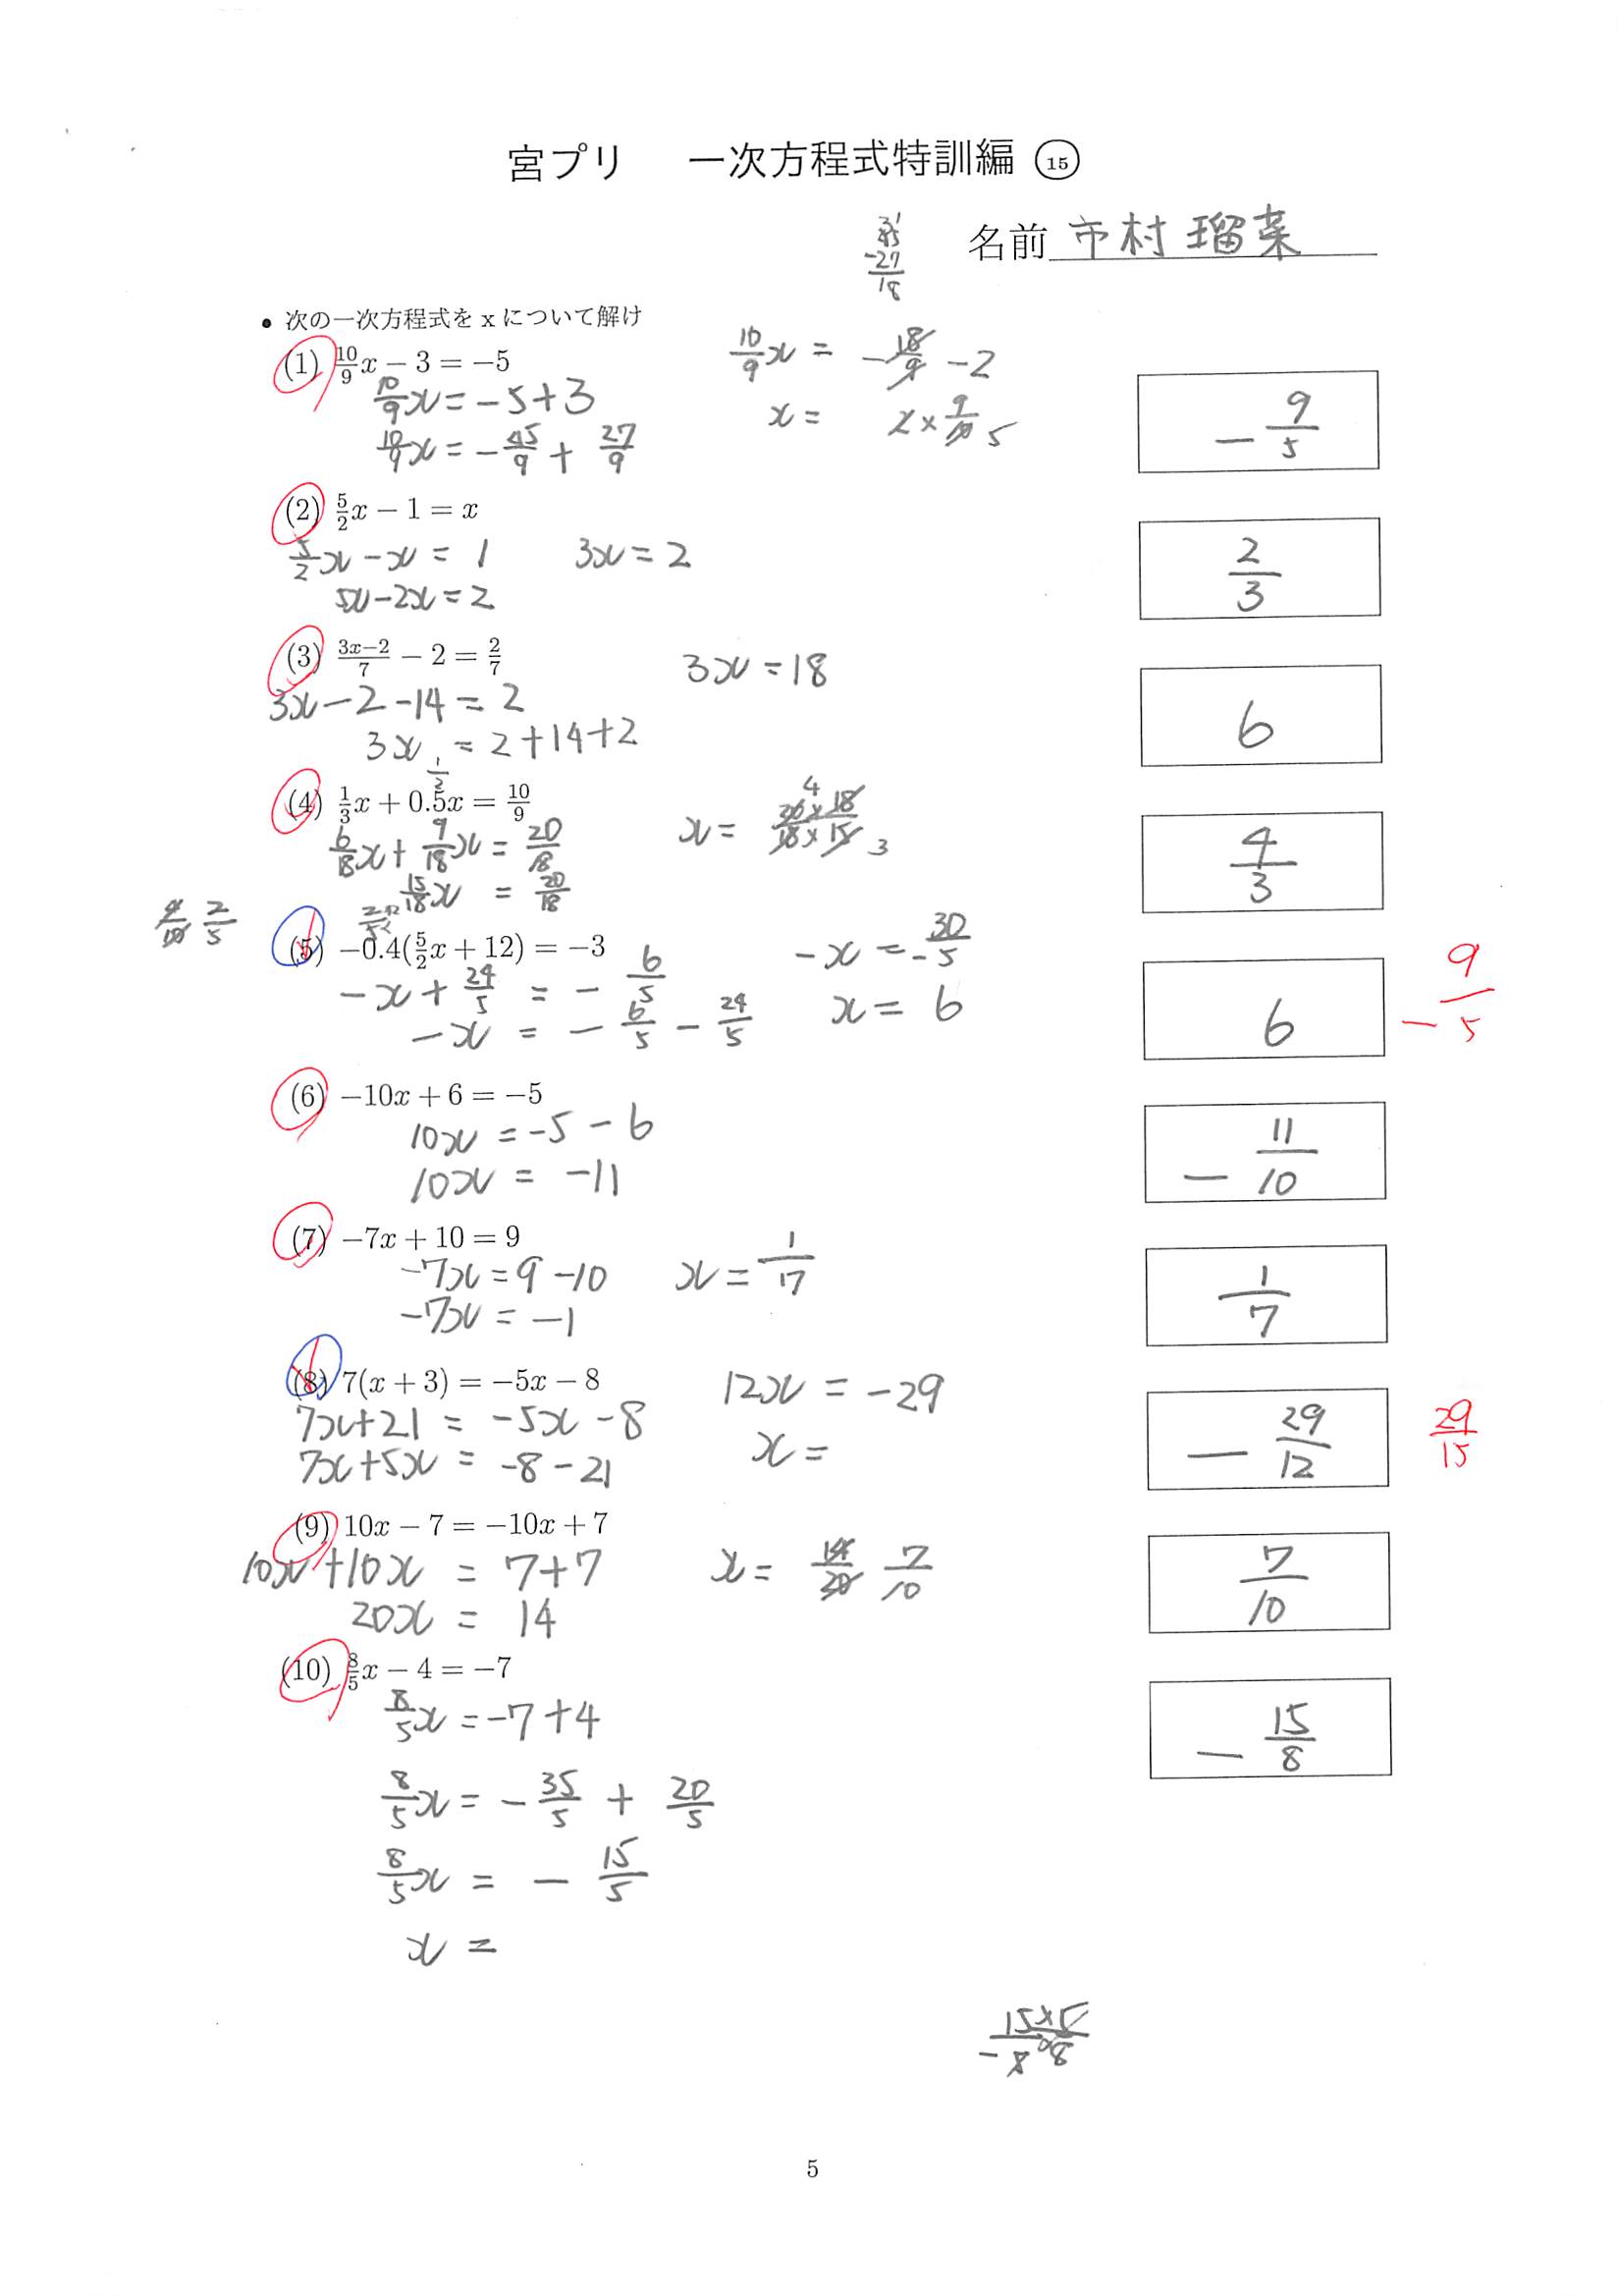 宮プリ 一次方程式特訓編 ⑮
名前 市村 瑠菜
-27
18
• 次の一次方程式を x について解け
(1) 10/9 x − 3 = −5
10/9 x = −5+3
10/9 x = −45/9 + 27/9
10/9 x = −18/9 −2
x = 2×9/10 5
−9/5
(2) 5/2 x − 1 = x
5/2 x − x = 1
5x−2x = 2
3x = 2
2/3
(3) (3x−2)/7 − 2 = 2/7
3x−2−14 = 2
3x = 2+14+2
3x = 18
6
(4) 1/3 x + 0.5x = 10/9
1/2
6/18 x + 9/18 x = 20/18
15/18 x = 20/18
x = 4 20×18/18×15 3
4/3
4/10 2/5
(5) −0.4(5/2 x + 12) = −3
−x + 24/5 = −6/5
−x = −6/5 − 24/5
−x = −30/5
x = 6
6
−9/5
(6) −10x + 6 = −5
10x = −5 − 6
10x = −11
−11/10
(7) −7x + 10 = 9
−7x = 9 −10
−7x = −1
x = 1/17
1/7
(8) 7(x + 3) = −5x − 8
7x+21 = −5x −8
7x+5x = −8 −21
12x = −29
x =
−29/12
29/15
(9) 10x − 7 = −10x + 7
10x+10x = 7+7
20x = 14
x = 14/20 7/10
7/10
(10) 8/5 x − 4 = −7
8/5 x = −7+4
8/5 x = −35/5 + 20/5
8/5 x = −15/5
x =
−15/8
5